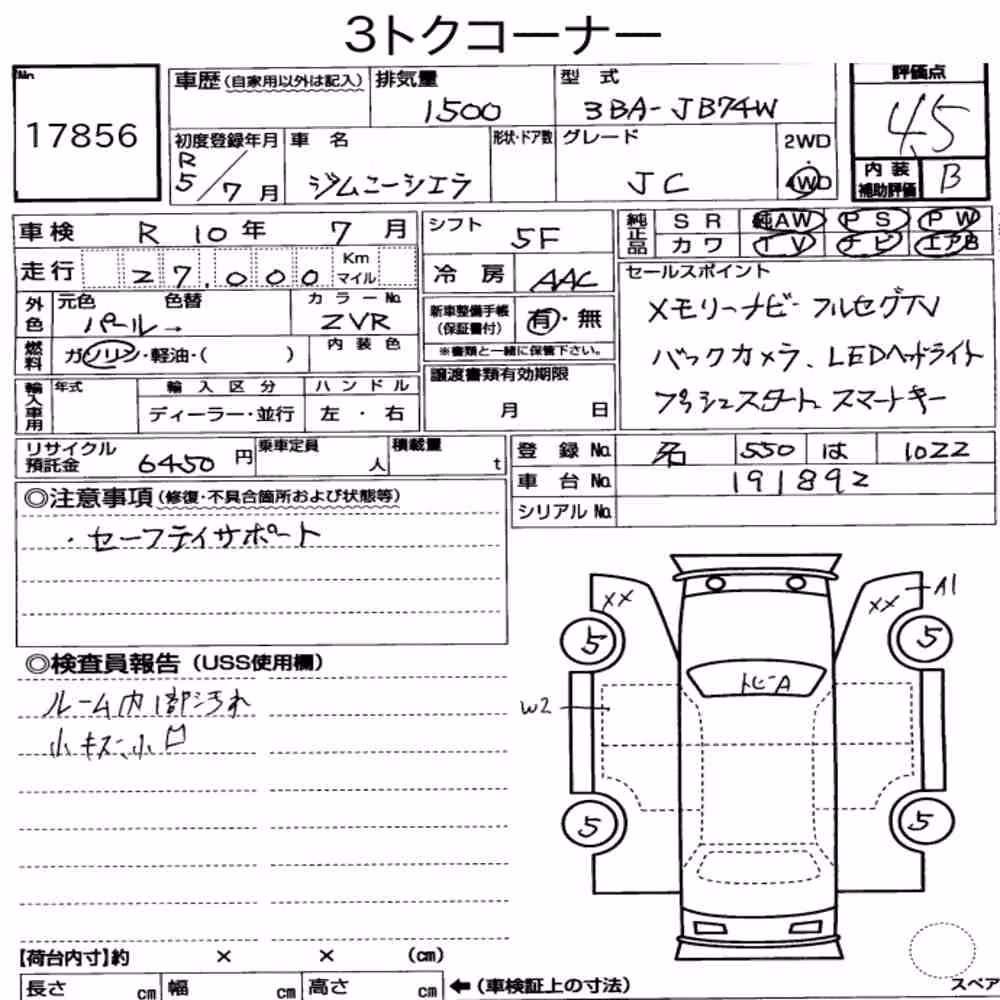 3トクコーナー
No.
17856
車歴(自家用以外は記入)
排気量
1500
型 式
3BA-JB74W
評価点
4.5
初度登録年月
R
5/7月
車 名
ジムニーシエラ
形状・ドア数
グレード
JC
2WD
・
4WD
内装
補助評価
B
車検 R 10年 7月
シフト
5F
純正品
SR 純AW PS PW
カワ TV ナビ エアB
走行 27,000 Km マイル
冷 房
AAC
セールスポイント
メモリーナビ フルセグTV
バックカメラ、LEDヘッドライト
プッシュスタート スマートキー
外色
元色 色替
パール→
カラーNo.
ZVR
新車整備手帳
(保証書付)
有・無
※書類と一緒に保管下さい。
燃料
ガソリン・軽油・( )
内装色
譲渡書類有効期限
月 日
輸入車用
年式
輸入区分
ディーラー・並行
ハンドル
左・右
リサイクル
預託金
6450円
乗車定員
人
積載量
t
登 録 No. 550 は 1022
車 台 No. 191892
シリアル No.
◎注意事項(修復・不具合箇所および状態等)
・セーフティサポート
◎検査員報告(USS使用欄)
ルーム内1部汚れ
小キズ、小凹
××
××
A1
5
5
トビーA
W2
5
5
【荷台内寸】約 × × (cm)
長さ cm 幅 cm 高さ cm ←(車検証上の寸法)
スペア